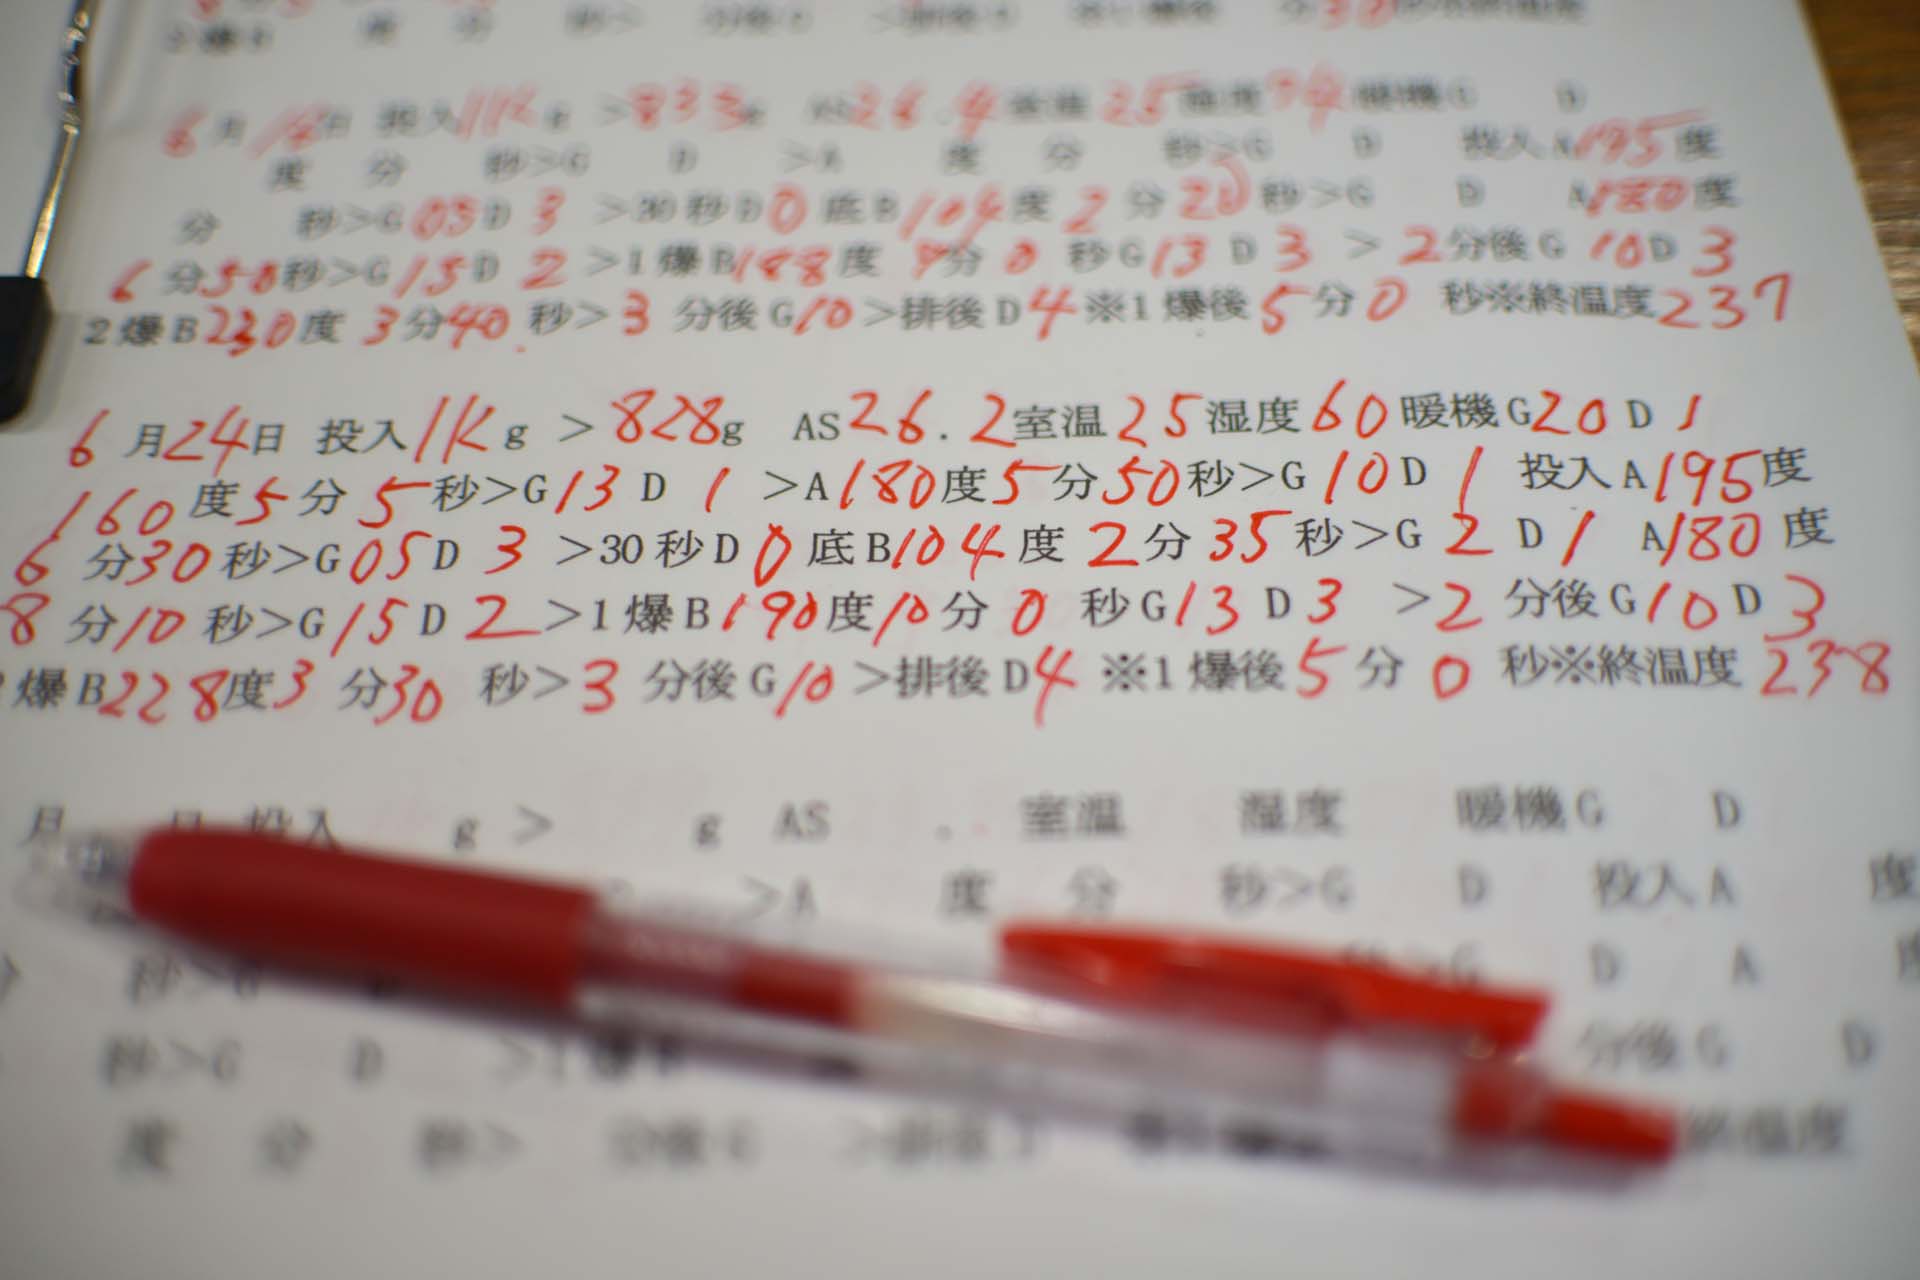 6月 日 投入11Kg >833g AS26.4室温25湿度74暖機G D
度 分 秒>G D >A 度 分 秒>G D 投入A195度
分 秒>G 05 D 3 >30秒D 0 底B104度 2分20秒>G D A180度
6分50秒>G 15 D 2 >1爆B188度 分 0 秒G 13 D 3 >2分後G 10 D 3
2爆B230度 3分40秒>3分後G10>排後D4※1爆後5分0秒※終温度237
6月24日 投入1Kg >828g AS26.2室温25湿度60暖機G20 D 1
160度5分5秒>G13 D 1 >A180度5分50秒>G 10 D 1 投入A195度
6分30秒>G 05 D 3 >30秒D 0 底B104度 2分35秒>G 2 D 1 A180度
8分10秒>G 15 D 2 >1爆B190度10分 0 秒G13 D 3 >2分後G10 D 3
爆B228度3分30秒>3分後G10>排後D4※1爆後5分0秒※終温度238
月 日 投入 g > g AS . 室温 湿度 暖機G D
>A 度 分 秒>G D 投入A 度
分 秒>G D A 度
秒>G D > 分後G D
度 分 秒> 分後G >排後D 終温度